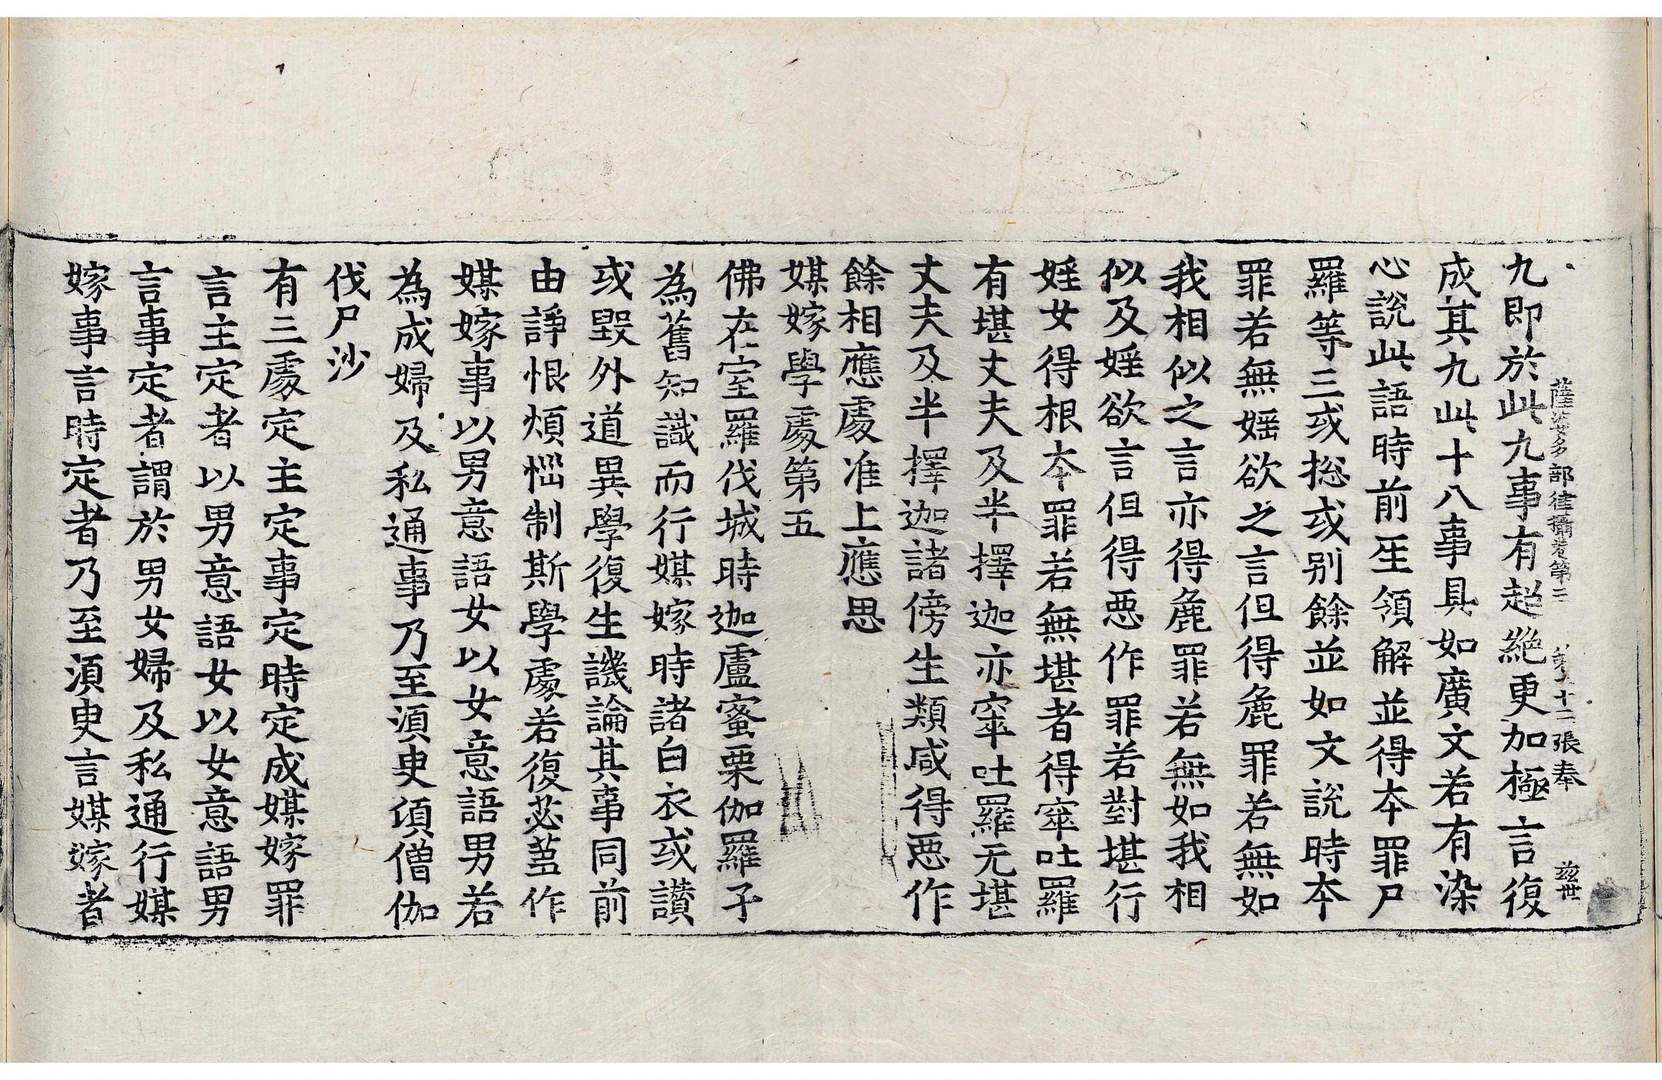 薩婆多部律攝卷第三 第二十二張 奉
九即於此九事有超絶更加極言復
成其九此十八事具如廣文若有染
心説此語時前坙領解並得夲罪尸
羅等三或捴或别餘並如文説時夲
罪若無婬欲之言但得麁罪若無如
我相似之言亦得麁罪若無如我相
似及婬欲言但得悪作罪若對堪行
婬女得根夲罪若無堪者得窣吐羅
有堪丈夫及半擇迦亦窣吐羅无堪
丈夫及半擇迦諸傍生類咸得悪作
餘相應䖏准上應思
媒嫁學䖏第五
佛在室羅伐城時迦盧蜜栗伽羅子
為舊知識而行媒嫁時諸白衣或讃
或毀外道異學復生譏論其事同前
由諍恨煩惱制斯學䖏若復苾蒭作
媒嫁事以男意語女以女意語男若
為成婦及私通事乃至湏臾頃僧伽
伐尸沙
有三䖏定主定事定時定成媒嫁罪
言主定者以男意語女以女意語男
言事定者謂於男女婦及私通行媒
嫁事言時定者乃至湏臾言媒嫁者